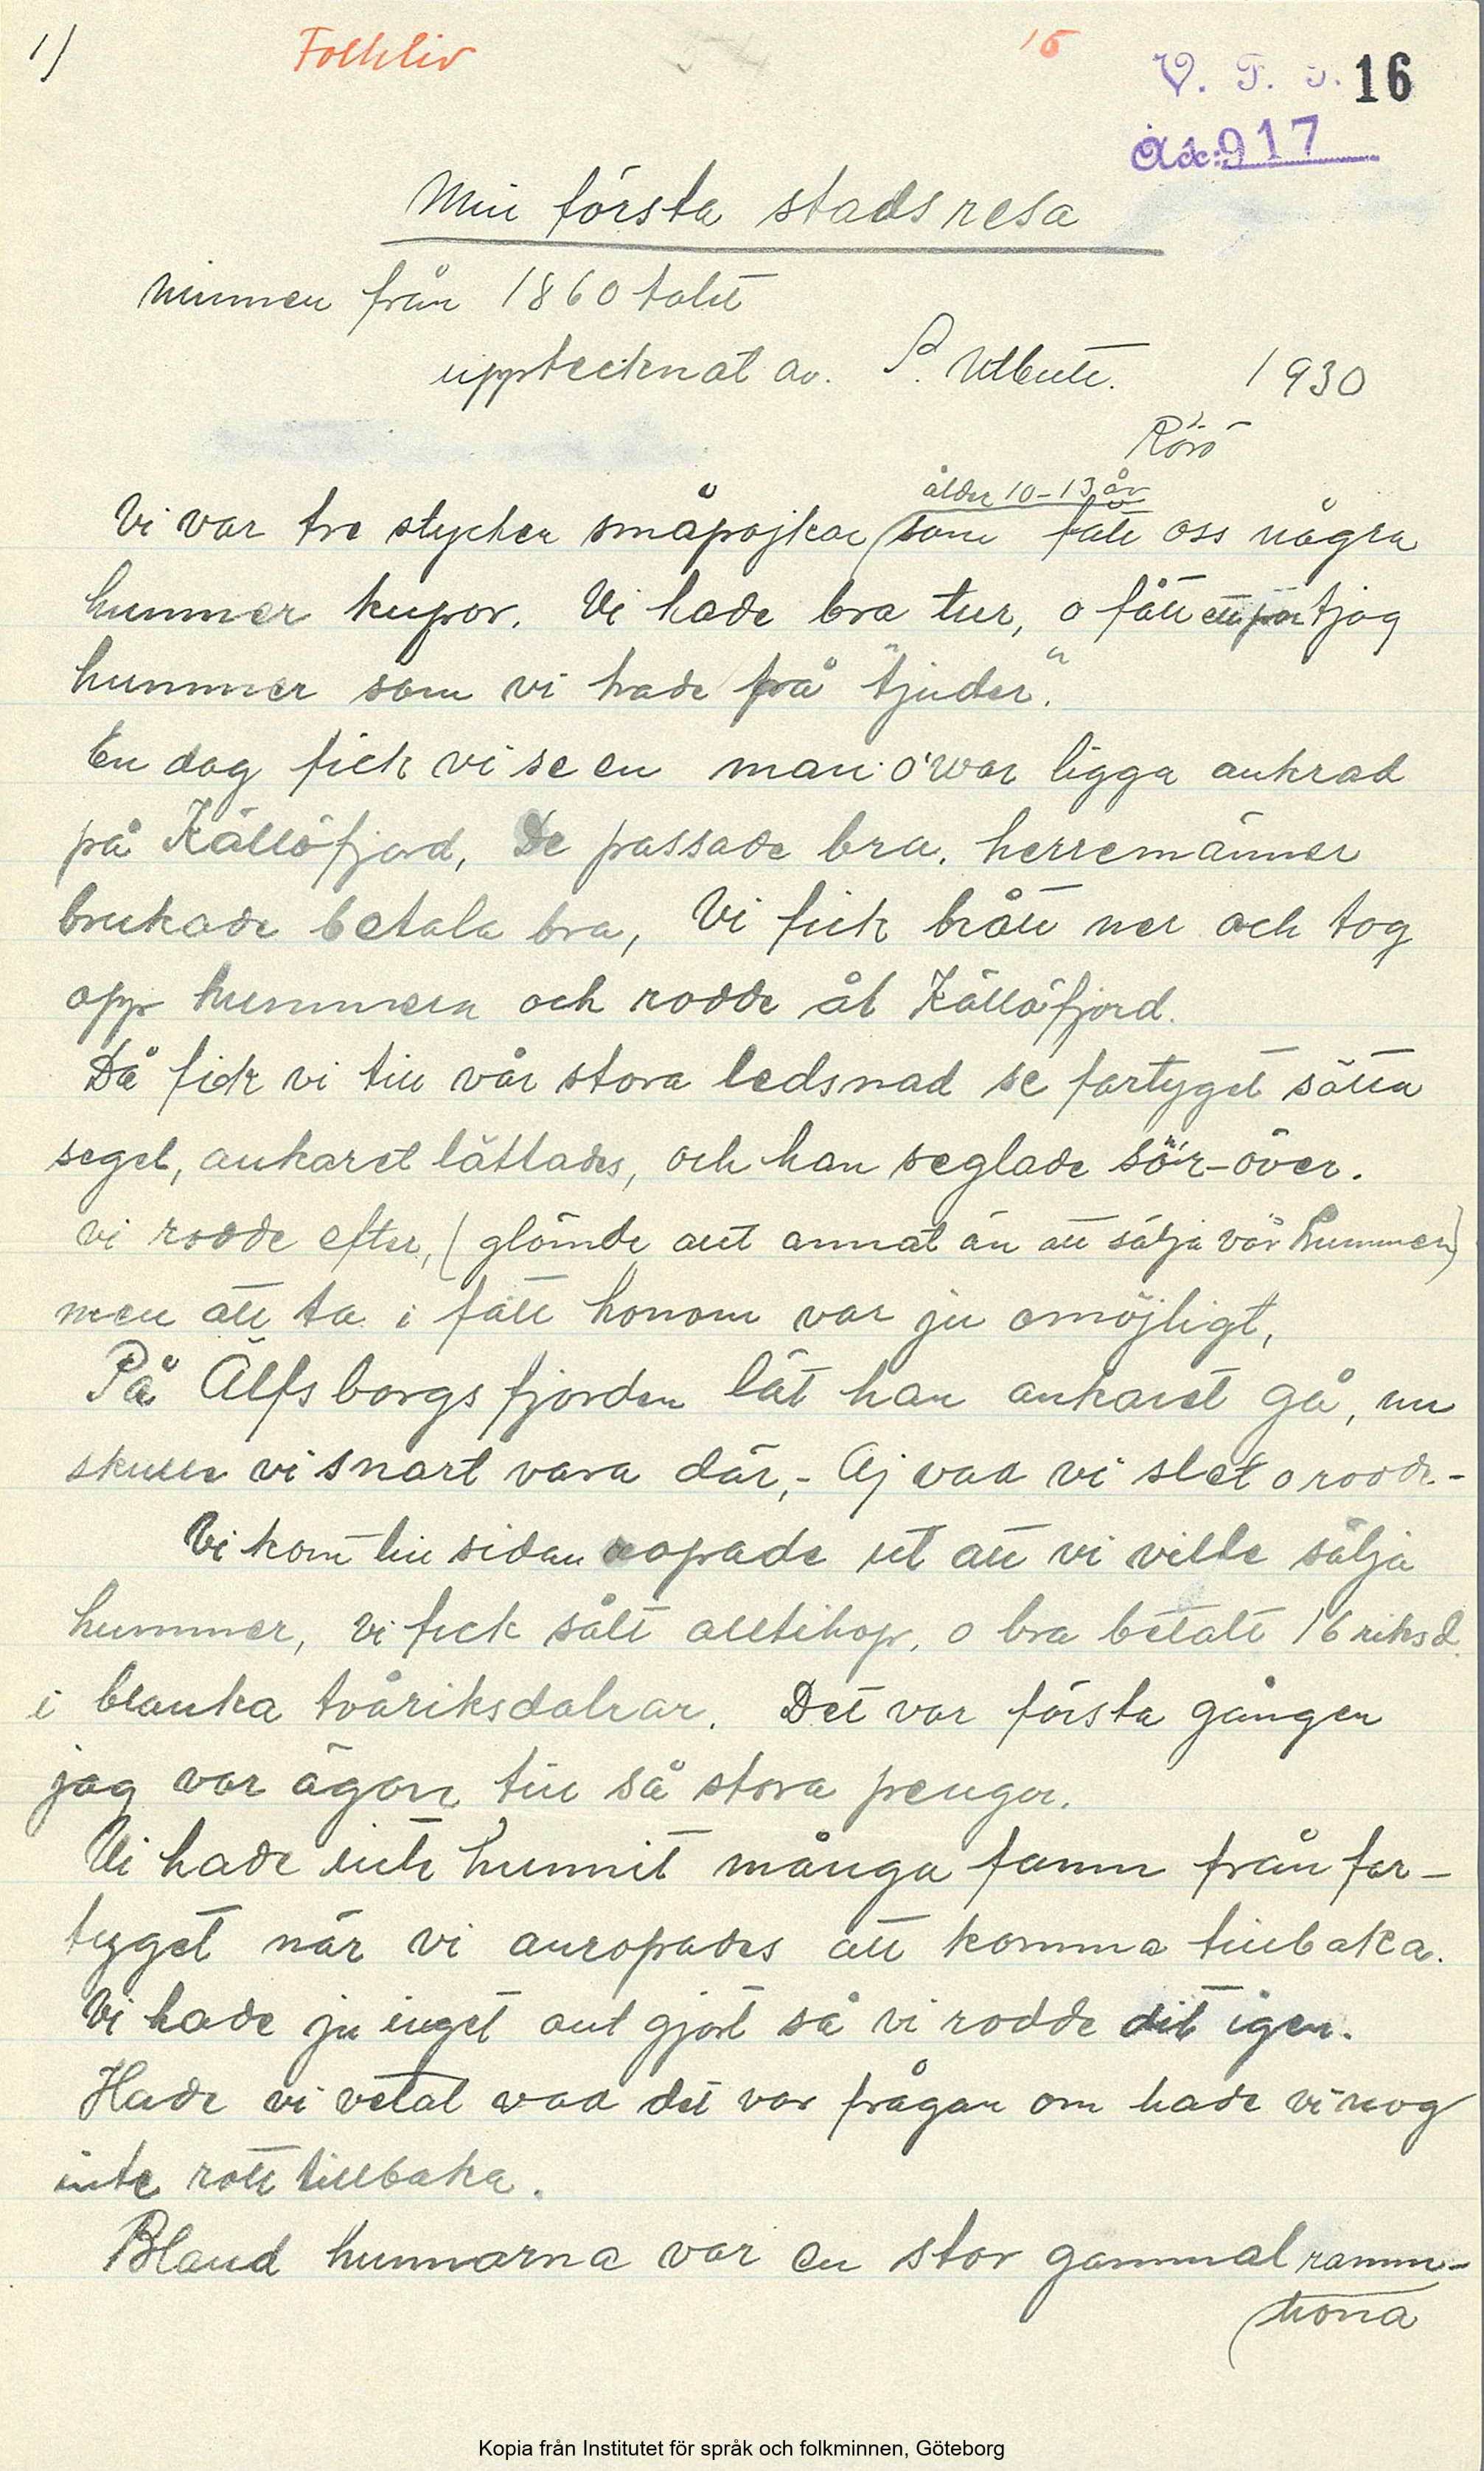 1)
Folkliv
15
V. F. 16
917
Min första stadsresa
minnen från 1860 talet
upptecknat av. P. 1930
Rörö
ålder 10-13 år
Vi var tre stycken småpojkar (som fått oss några
hummer kupor. Vi hade bra tur, o fått ett par tjog
hummer som vi hade på "tjuder."
En dag fick vi se en man o'war ligga ankrad
på Källöfjord, De passade bra. herremänner
brukade betala bra, Vi fick brått ner och tog
opp hummern och rodde åt Källöfjord.
Då fick vi till vår stora ledsnad se fartyget sätta
segel, ankaret lättades, och han seglade sör-över.
vi rodde efter, (glömde allt annat än att sälja vår hummer)
men att ta i fatt honom var ju omöjligt,
På Älfsborgsfjorden lät han ankaret gå, nu
skulle vi snart vara där,- Aj vad vi slet o rodde-
Vi kom till sidan ropade ut att vi ville sälja
hummer, vi fick sålt alltihop, o bra betalt 16 riksd.
i blanka tvåriksdalrar. Det var första gången
jag var ägare till så stora pengar.
Vi hade inte hunnit många famn från far-
tyget när vi anropades att komma tillbaka.
Vi hade ju inget ont gjort så vi rodde dit igen.
Hade vi vetat vad det var frågan om hade vi nog
inte rott tillbaka.
Bland hummarna var en stor gammal romm-
(hona
Kopia från Institutet för språk och folkminnen, Göteborg